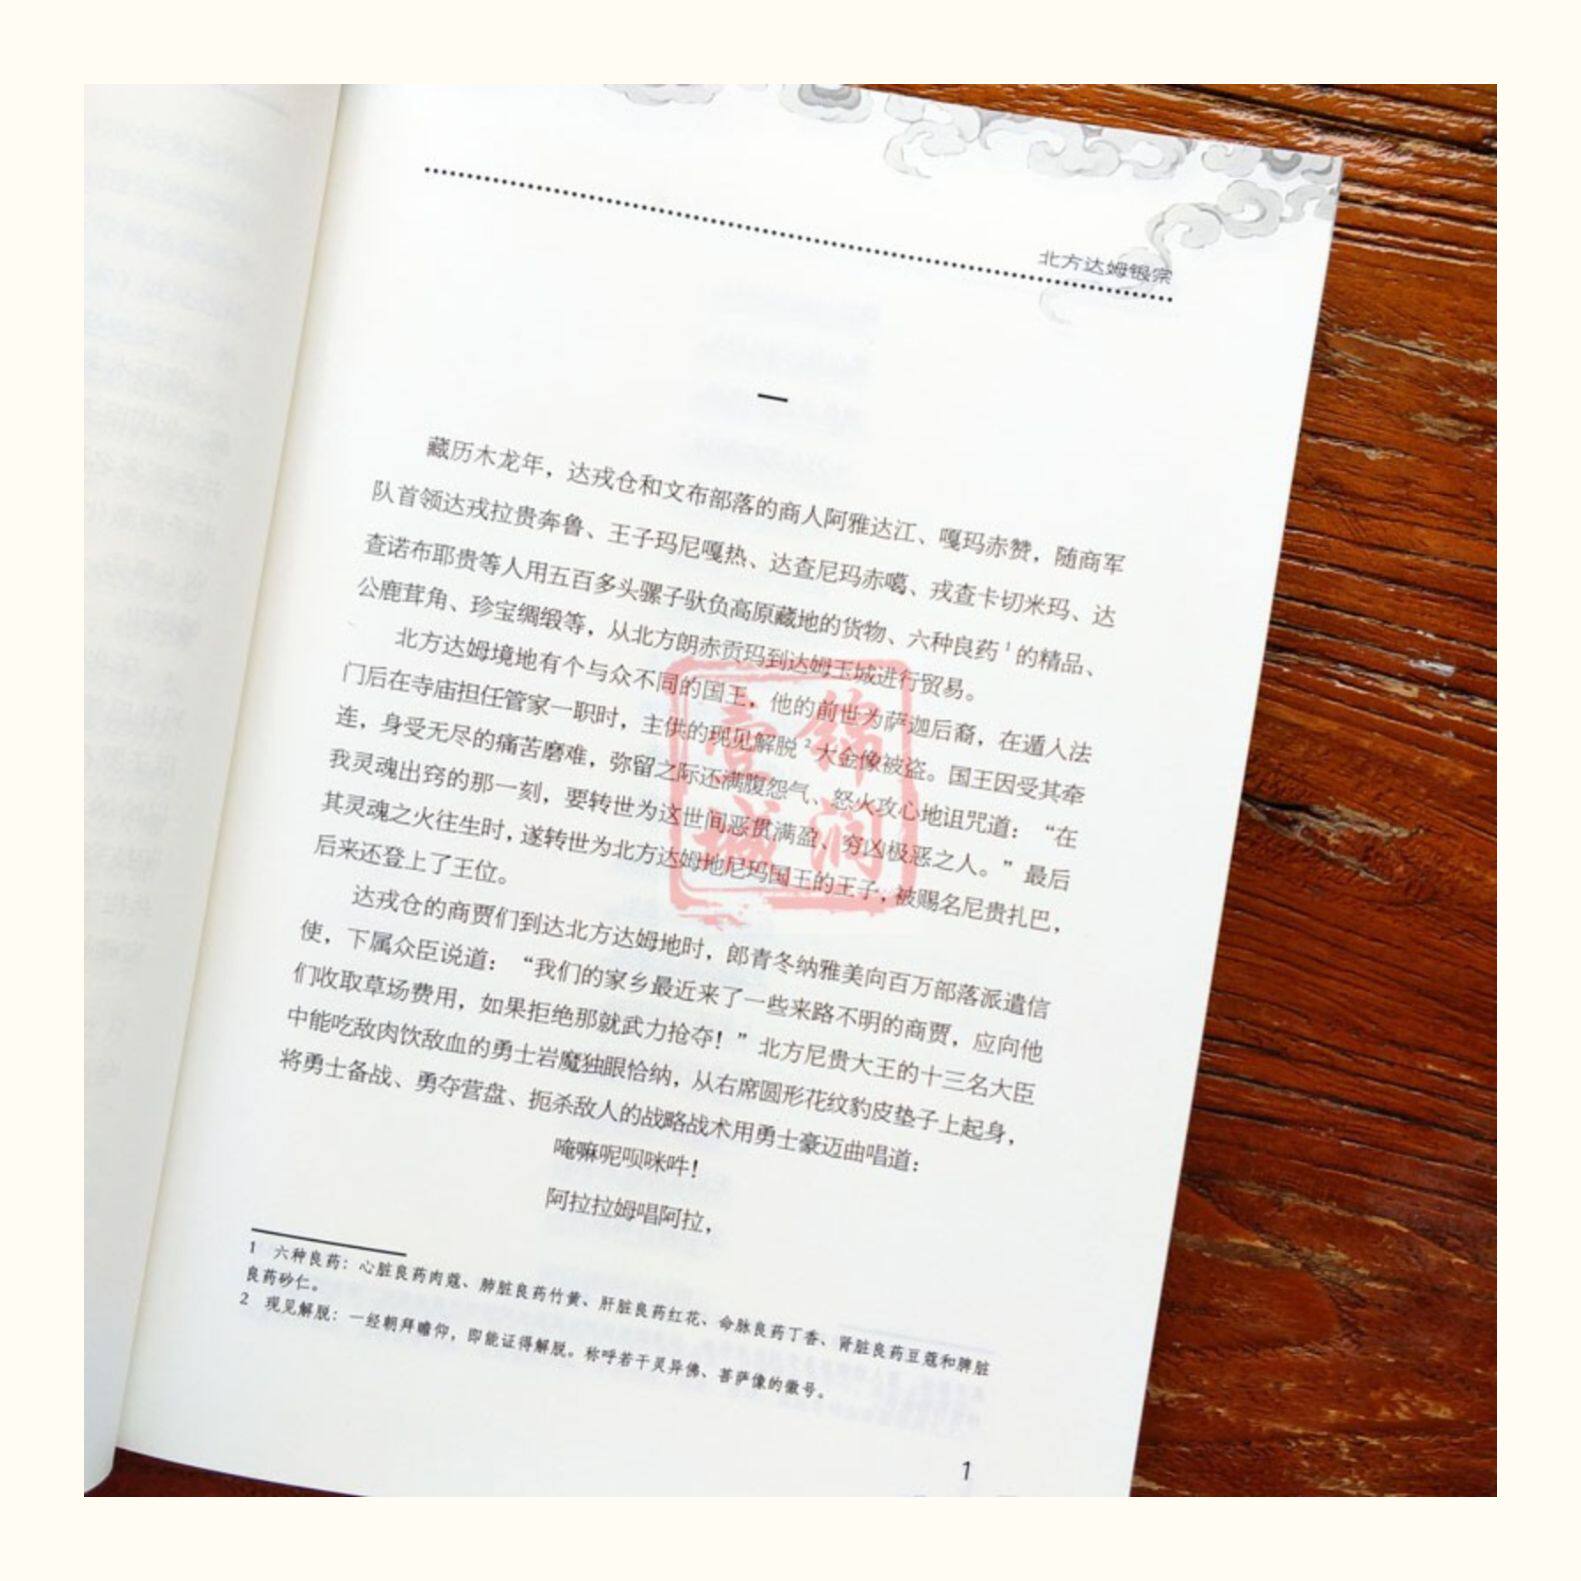 北方达姆银宗
一
藏历木龙年，达戎仓和文布部落的商人阿雅达江、嘎玛赤赞，随商军
队首领达戎拉贵奔鲁、王子玛尼嘎热、达查尼玛赤噶、戎查卡切米玛、达
查诺布耶贵等人用五百多头骡子驮负高原藏地的货物、六种良药1的精品、
公鹿茸角、珍宝绸缎等，从北方朗赤贡玛到达姆玉城进行贸易。
北方达姆境地有个与众不同的国王，他的前世为萨迦后裔，在遁入法
门后在寺庙担任管家一职时，主供的现见解脱2大金像被盗。国王因受其牵
连，身受无尽的痛苦磨难，弥留之际还满腹怨气、怒火攻心地诅咒道：“在
我灵魂出窍的那一刻，要转世为这世间恶贯满盈、穷凶极恶之人。”最后
其灵魂之火往生时，遂转世为北方达姆地尼玛国王的王子，被赐名尼贵扎巴，
后来还登上了王位。
达戎仓的商贾们到达北方达姆地时，郎青冬纳雅美向百万部落派遣信
使，下属众臣说道：“我们的家乡最近来了一些来路不明的商贾，应向他
们收取草场费用，如果拒绝那就武力抢夺！”北方尼贵大王的十三名大臣
中能吃敌肉饮敌血的勇士岩魔独眼恰纳，从右席圆形花纹豹皮垫子上起身，
将勇士备战、勇夺营盘、扼杀敌人的战略战术用勇士豪迈曲唱道：
唵嘛呢呗咪吽！
阿拉拉姆唱阿拉，
1 六种良药：心脏良药肉蔻、肺脏良药竹黄、肝脏良药红花、命脉良药丁香、肾脏良药豆蔻和脾脏
良药砂仁。
2 现见解脱：一经朝拜瞻仰，即能证得解脱。称呼若干灵异佛、菩萨像的徽号。
1
锦润
壹城